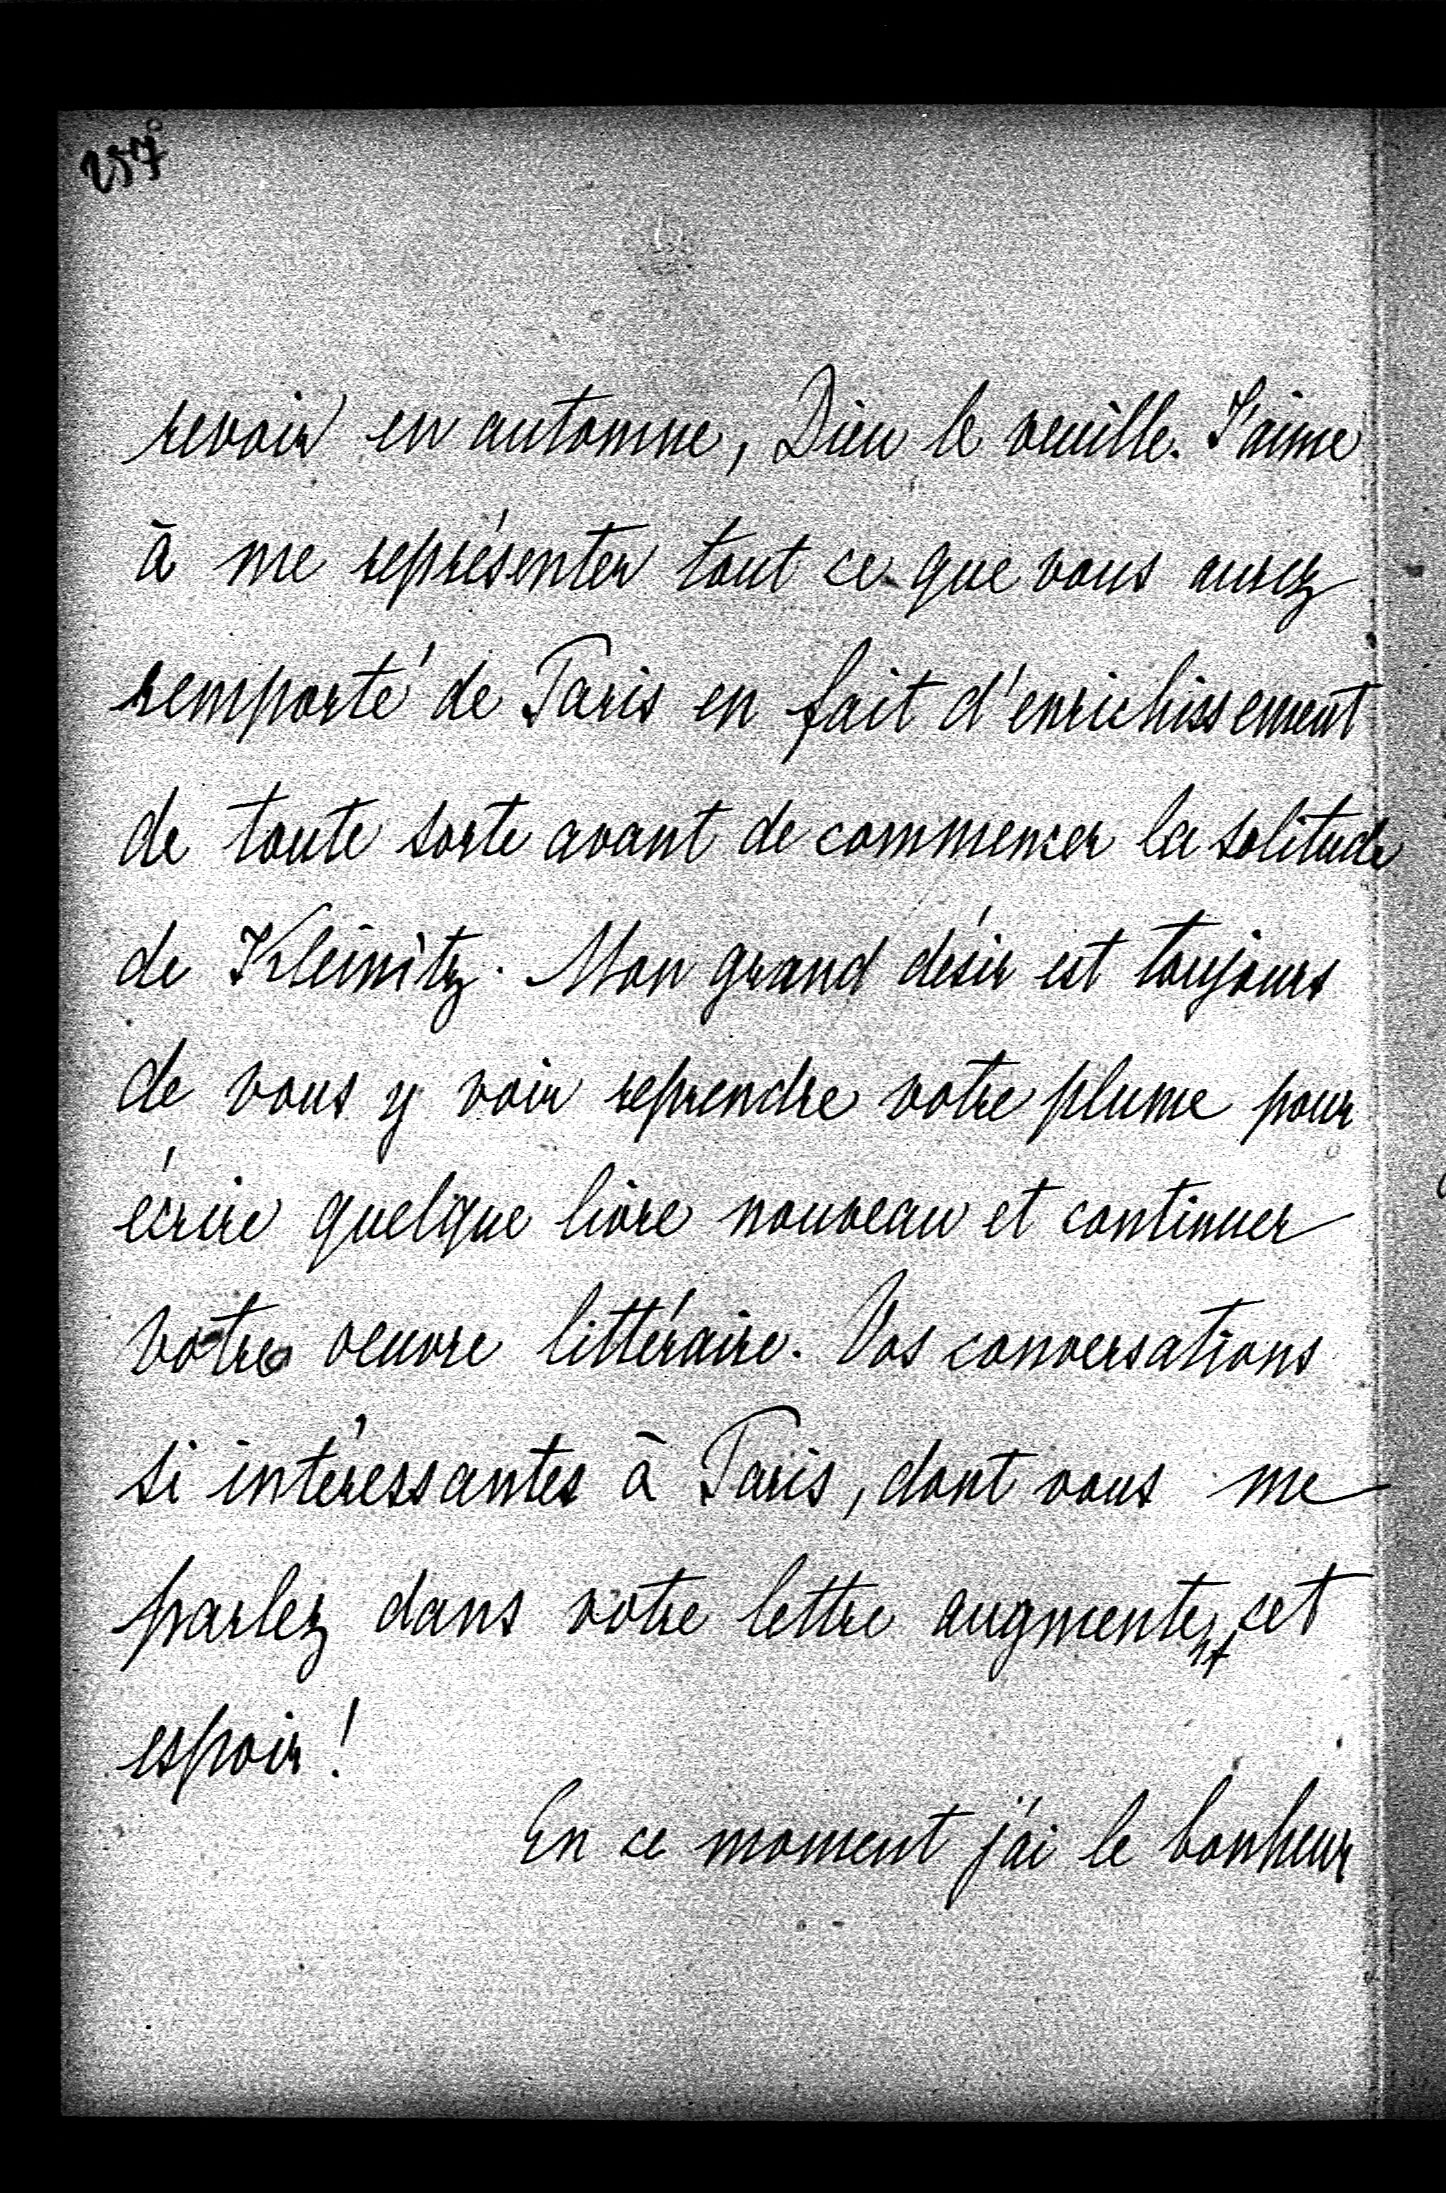 257
revoir en automne, Dieu le veuille. J'aime
à me représenter tout ce que vous aurez
remporté de Paris en fait d'enrichissement
de toute sorte avant de commencer la solitude
de Kleinitz. Mon grand désir est toujours
de vous y voir reprendre votre plume pour
écrire quelque livre nouveau et continuer
votre oeuvre littéraire. Vos conversations
si intéressantes à Paris, dont vous me
parlez dans votre lettre augmentent cet
espoir!
En ce moment j'ai le bonheur